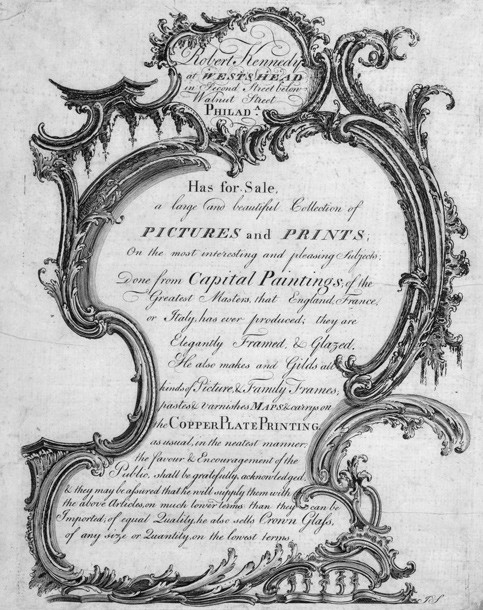 Robert Kennedy
at WESTS HEAD
in Second Street below
Walnut Street
PHILADᴬ.
Has for Sale,
a large and beautiful Collection of
PICTURES and PRINTS;
On the most interesting and pleasing Subjects;
Done from Capital Paintings, of the
Greatest Masters, that England, France,
or Italy, has ever produced; they are
Elegantly Framed, & Glazed,
He also makes and Gilds all
kinds of Picture, & Family Frames,
pastes & varnishes MAPS & carrys on
the COPPER PLATE PRINTING
as usual, in the neatest manner;
the favour & Encouragement of the
Public, shall be gratefully, acknowledged,
& they may be aſsured that he will supply them with
the above Articles, on much lower terms than they can be
Imported, of equal Quality, he also sells Crown Glaſs,
of any size or Quantity, on the lowest terms.